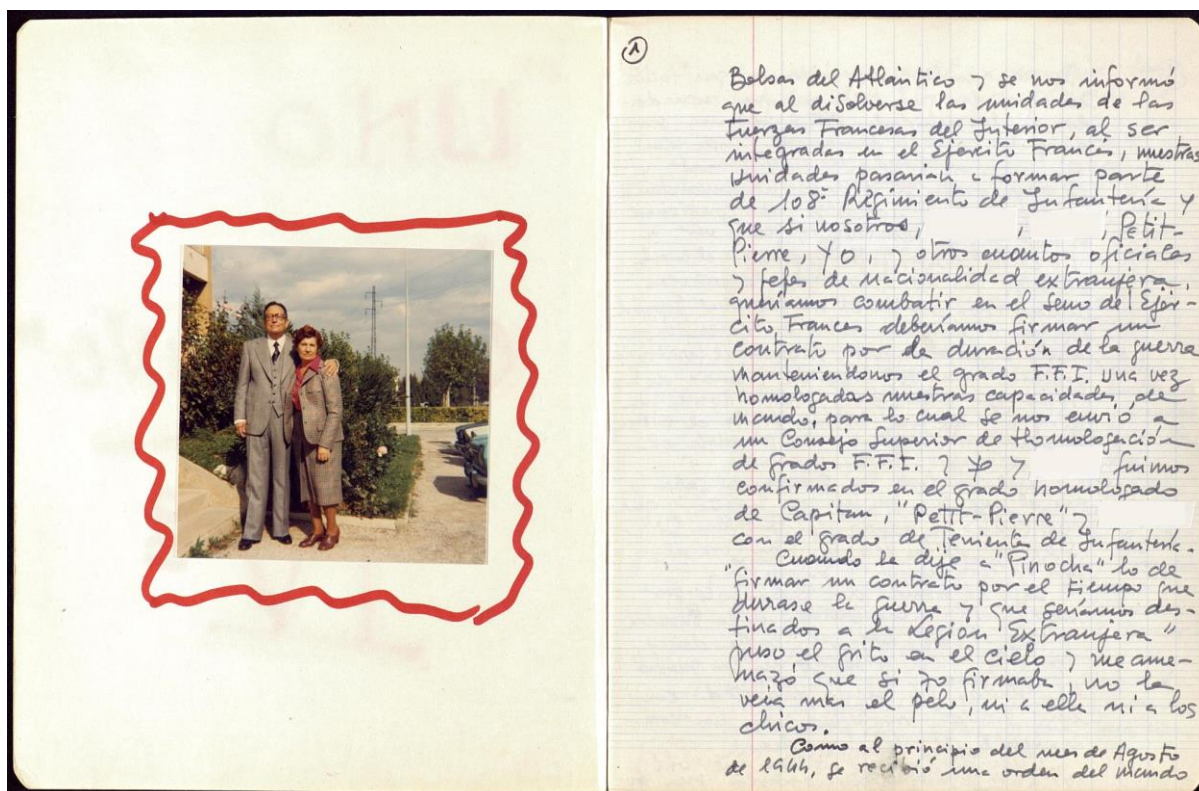 1
Bolsas del Atlántico y se nos informó
que al disolverse las unidades de las
Fuerzas Francesas del Interior, al ser
integradas en el Ejercito Frances, nuestras
unidades pasarian a formar parte
de 108º Regimiento de Infantería y
que si nosotros, , , Petit-
Pierre, Yo, y otros cuantos oficiales
y jefes de nacionalidad extranjera,
queriamos combatir en el seno del Ejer-
cito Frances deberíamos firmar un
contrato por la duración de la guerra
manteniendonos el grado F.F.I. una vez
homologadas nuestras capacidades de
mando, para lo cual se nos envió a
un Consejo Superior de Homologación
de grados F.F.I. y yo y fuimos
confirmados en el grado homologado
de Capitan, "Petit-Pierre" y
con el grado de Teniente de Infantería.
Cuando le dije a "Pinocha" lo de
"firmar un contrato por el tiempo que
durase la guerra y que seríamos des-
tinados a la Legión Extranjera"
puso el grito en el cielo y me ame-
nazó que si yo firmaba, no la
veia mas el pelo, ni a ella ni a los
chicos.
Como al principio del mes de Agosto
de 1944, se recibió una orden del mando
uno